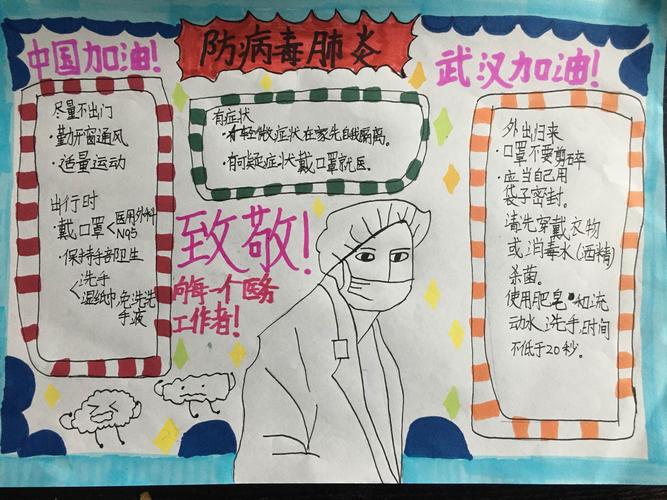 中国加油!
防病毒肺炎
武汉加油!
尽量不出门
·勤开窗通风
·适量运动
出行时
·戴口罩<医用外科
N95
·保持手部卫生
<洗手
湿纸巾免洗洗
手液
有症状
·有轻微症状在家先自我隔离。
·有可疑症状戴口罩就医。
致敬!
向每一个医务
工作者!
外出归来
·口罩不要剪碎
·应当自己用
袋子密封。
请先穿戴衣物
或消毒水(酒精)
杀菌。
使用肥皂和流
动水洗手时间
不低于20秒。